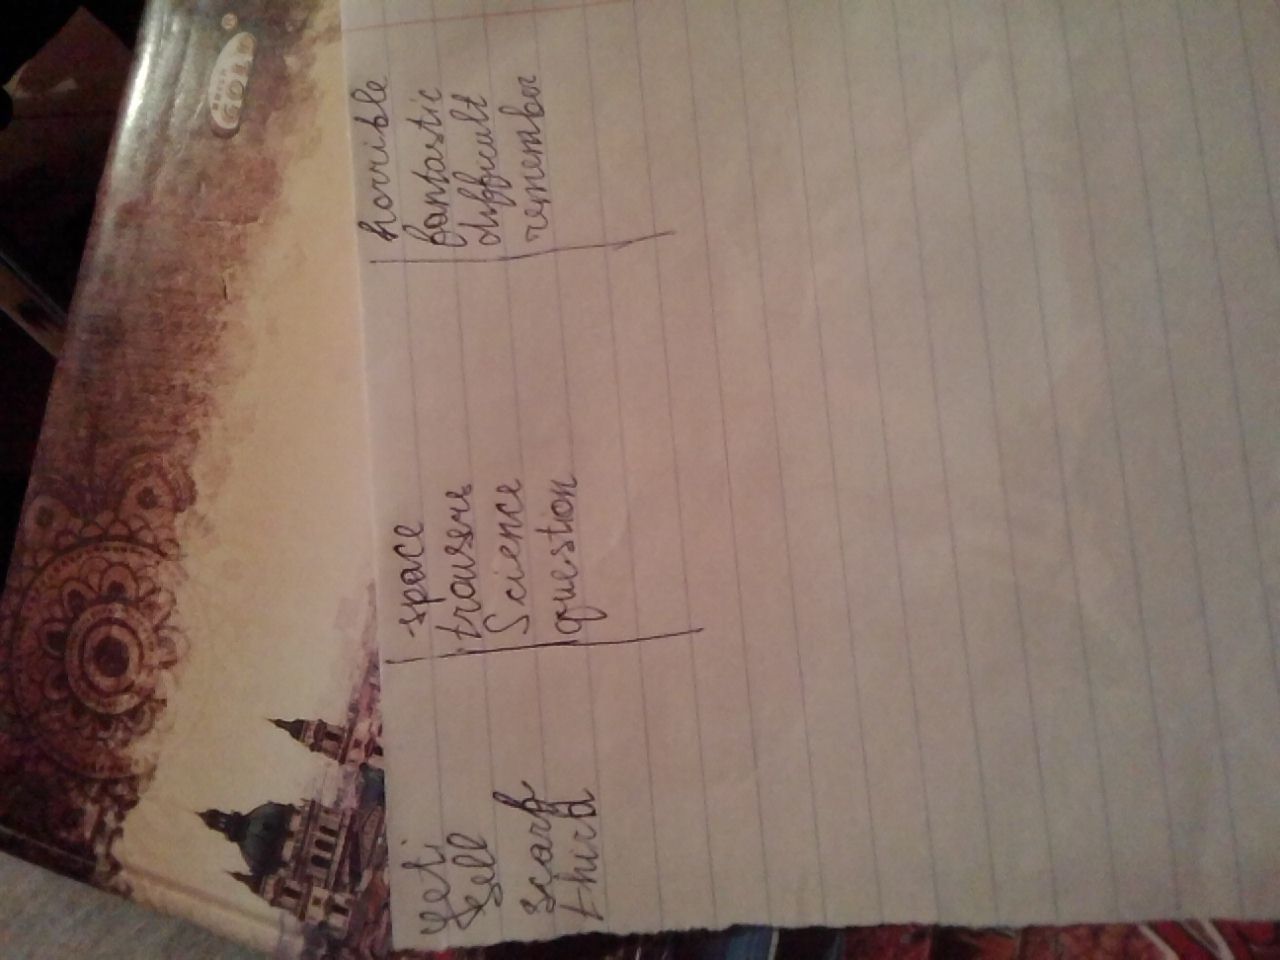 yeti | space | horrible
sell | trousers | fantastic
scarf | Science | difficult
third | question | remember